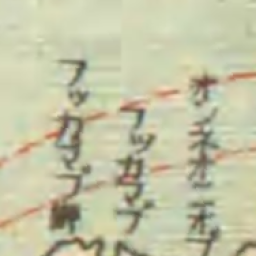 オンネオニオプ
フッカマプ
フッカマプ岬